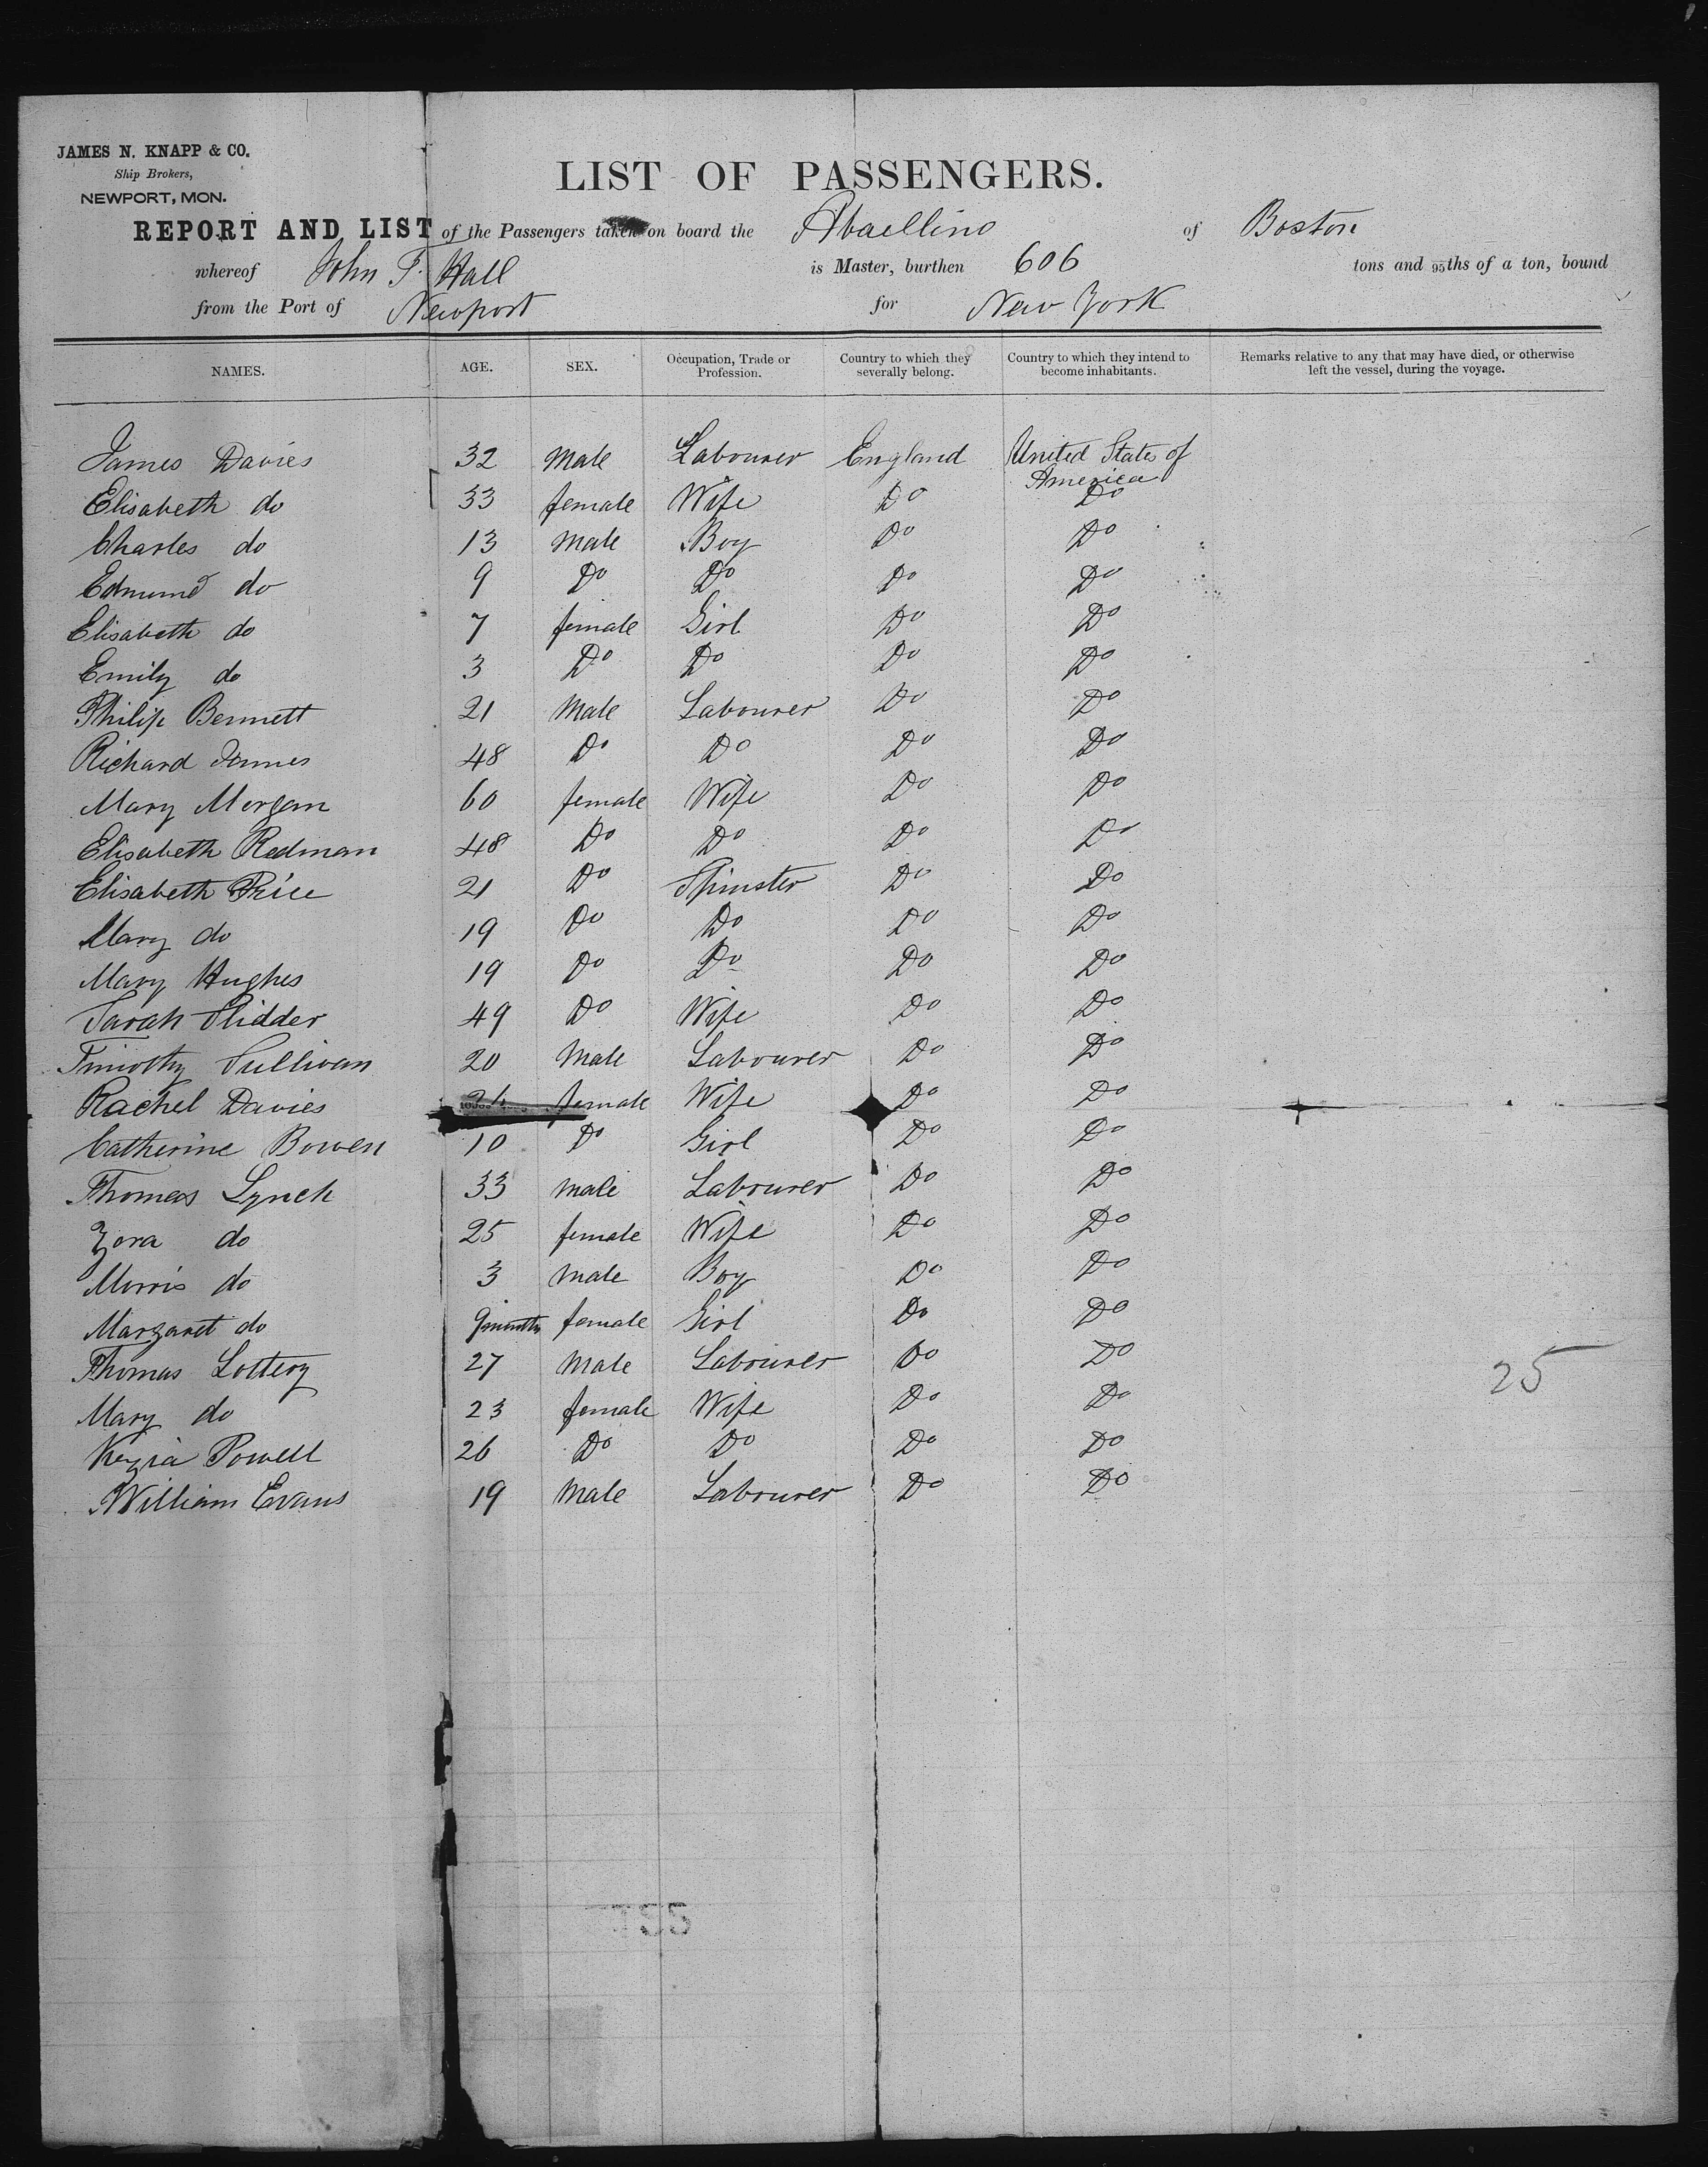 JAMES N. KNAPP & CO.
Ship Brokers,
NEWPORT, MON.
LIST OF PASSENGERS.
REPORT AND LIST of the Passengers taken on board the Abaellino of Boston
whereof John T. Hall is Master, burthen 606 tons and 95ths of a ton, bound
from the Port of Newport for New York
NAMES. AGE. SEX. Occupation, Trade or Profession. Country to which they severally belong. Country to which they intend to become inhabitants. Remarks relative to any that may have died, or otherwise left the vessel, during the voyage.
James Davies 32 Male Labourer England United State of America
Elisabeth do 33 female Wife Do Do
Charles do 13 Male Boy Do Do
Edmund do 9 Do Do Do Do
Elisabeth do 7 female Girl Do Do
Emily do 3 Do Do Do Do
Philip Bennett 21 Male Labourer Do Do
Richard James 48 Do Do Do Do
Mary Morgan 60 female Wife Do Do
Elisabeth Redman 48 Do Do Do Do
Elisabeth Price 21 Do Spinster Do Do
Mary do 19 Do Do Do Do
Mary Hughes 19 Do Do Do Do
Sarah Slidder 49 Do Wife Do Do
Timothy Sullivan 20 Male Labourer Do Do
Rachel Davies female Wife Do Do
Catherine Bowen 10 Do Girl Do Do
Thomas Lynch 33 Male Labourer Do Do
Zora do 25 female Wife Do Do
Morris do 3 Male Boy Do Do
Margaret do 9 months female Girl Do Do
Thomas Lottery 27 Male Labourer Do Do
Mary do 23 female Wife Do Do
Kezia Powell 26 Do Do Do Do
William Evans 19 Male Labourer Do Do
25